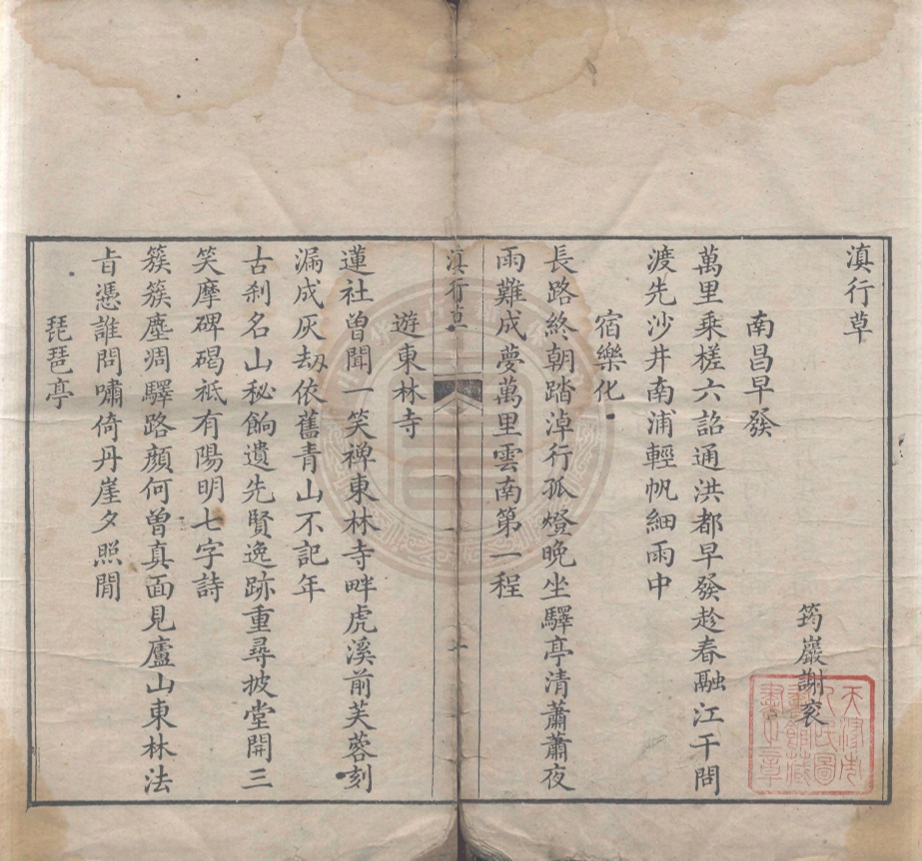 滇行草
筠巖謝衮
南昌早發
萬里乘槎六詔通洪都早發趁春融江干問
渡先沙井南浦輕帆細雨中
宿樂化
長路終朝踏淖行孤燈晚坐驛亭清蕭蕭夜
雨難成夢萬里雲南第一程
滇行草
一
遊東林寺
蓮社曾聞一笑禪東林寺畔虎溪前芙蓉刻
漏成灰刼依舊青山不記年
古刹名山秘餉遺先賢逸跡重尋披堂開三
笑摩碑碣祇有陽明七字詩
簇簇塵凋驛路顏何曾真面見廬山東林法
㫖憑誰問嘯倚丹崖夕照閒
琵琶亭
天津市
人民圖
書館藏
書之章